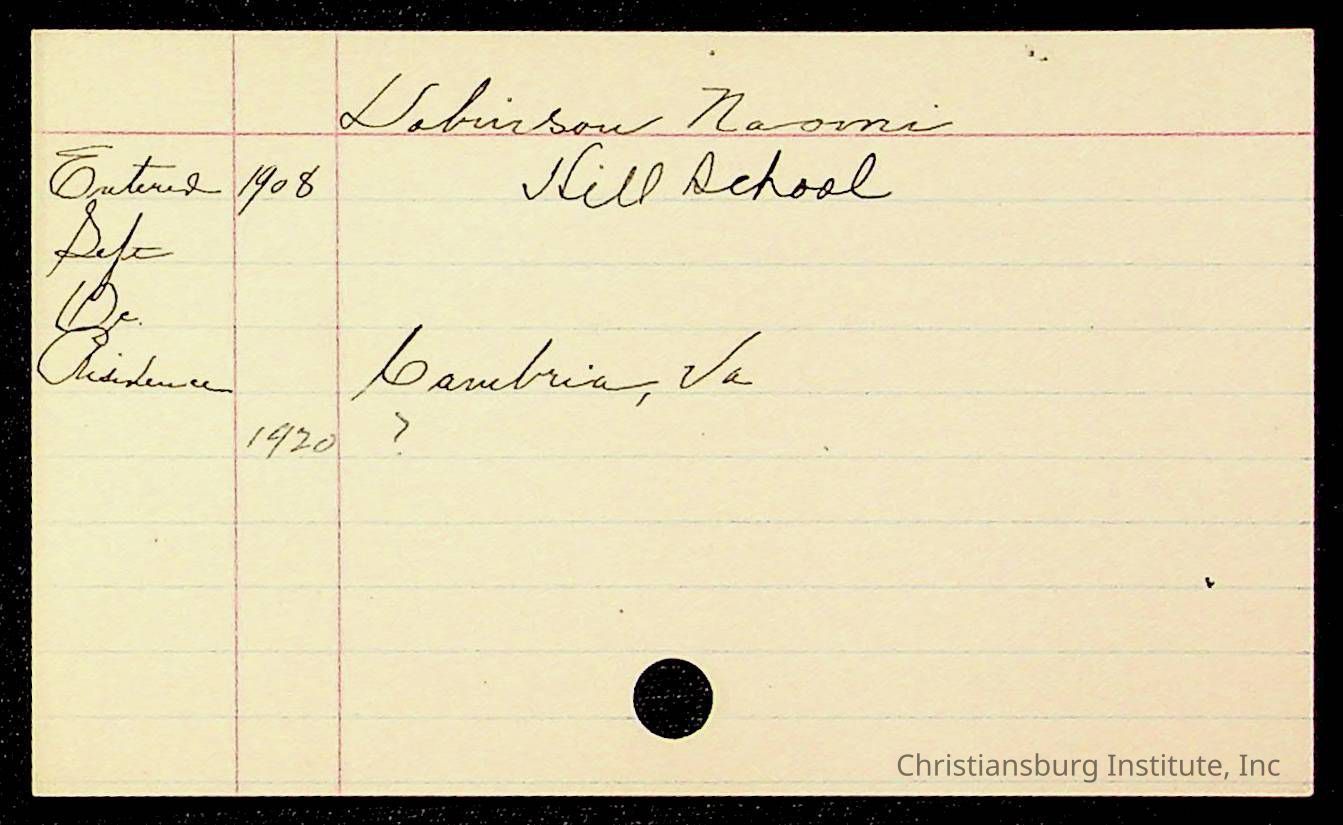 Naomi
Entered 1908 Hill School
Left
Residence Cambria, Va
1920 ?
Christiansburg Institute, Inc